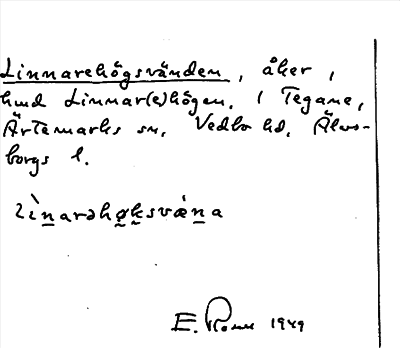 Linnarehögsvänden, åker,
hmd Linnar(e)högen. / Tegane,
Ärtemarks sn, Vedbo hd, Älvs-
borgs l.
lìnarəhøksvǽna
E. 1949